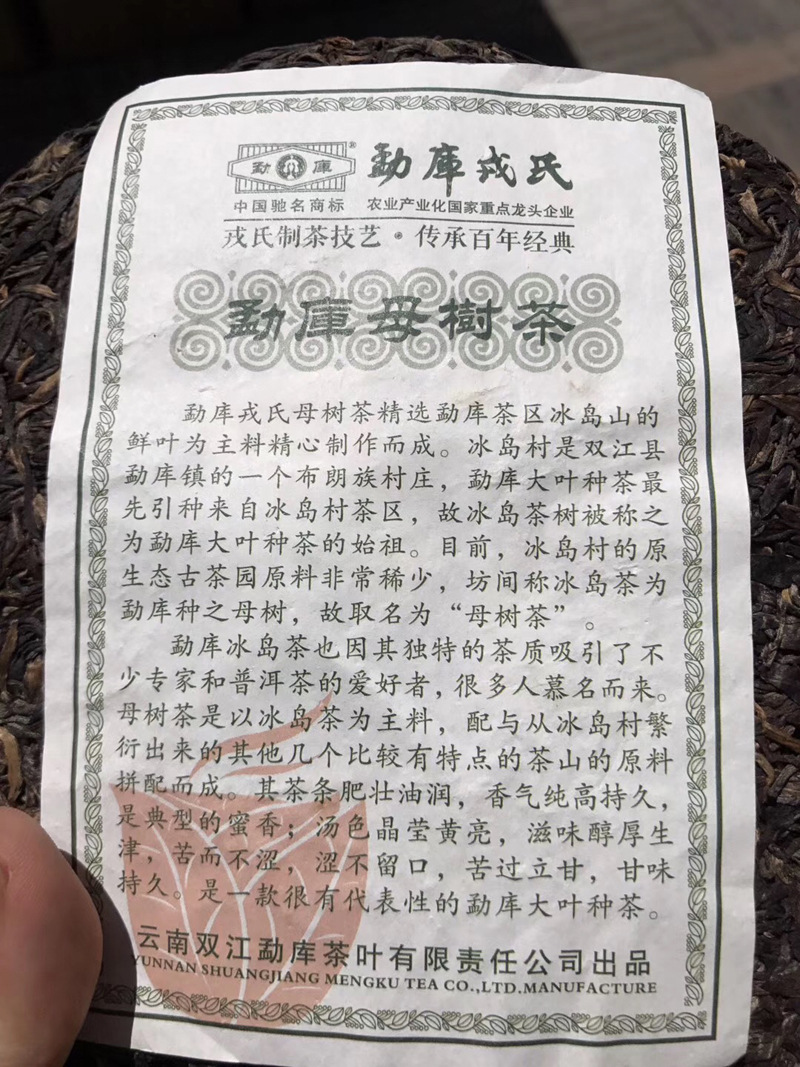 勐库®
勐库戎氏
中国驰名商标 农业产业化国家重点龙头企业
戎氏制茶技艺·传承百年经典
勐庫母樹茶
勐库戎氏母树茶精选勐库茶区冰岛山的
鲜叶为主料精心制作而成。冰岛村是双江县
勐库镇的一个布朗族村庄，勐库大叶种茶最
先引种来自冰岛村茶区，故冰岛茶树被称之
为勐库大叶种茶的始祖。目前，冰岛村的原
生态古茶园原料非常稀少，坊间称冰岛茶为
勐库种之母树，故取名为“母树茶”。
勐库冰岛茶也因其独特的茶质吸引了不
少专家和普洱茶的爱好者，很多人慕名而来。
母树茶是以冰岛茶为主料，配与从冰岛村繁
衍出来的其他几个比较有特点的茶山的原料
拼配而成。其茶条肥壮油润，香气纯高持久，
是典型的蜜香；汤色晶莹黄亮，滋味醇厚生
津，苦而不涩，涩不留口，苦过立甘，甘味
持久。是一款很有代表性的勐库大叶种茶。
云南双江勐库茶叶有限责任公司出品
YUNNAN SHUANGJIANG MENGKU TEA CO.,LTD.MANUFACTURE